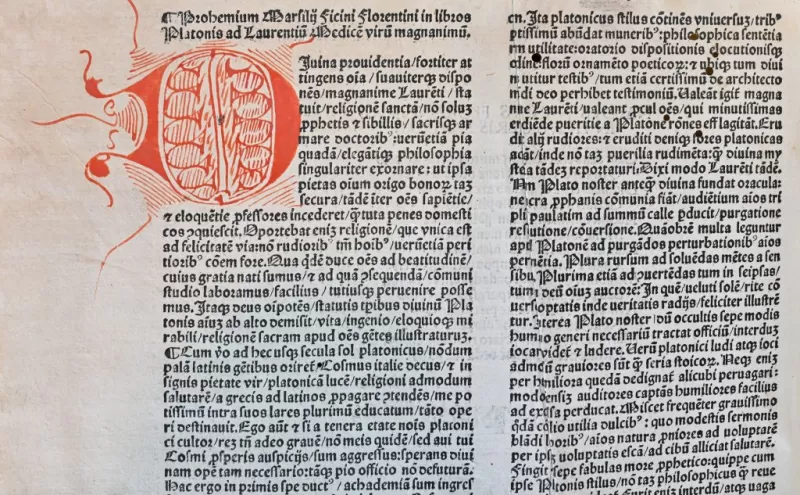 ¶ Prohemium Marsilij Ficini Florentini in libros
Platonis ad Laurentiū Medicē virū magnanimū.
Diuina prouidentia/fortiter at
tingens oīa/suauiterqꝫ dispo
nēs/magnanime Laurēti/sta
tuit/religionē sanctā/nō soluꝫ
ꝓphetis ⁊ sibillis/sacrisqꝫ ar
mare doctoribꝰ:ueruētiā pia
quadā/elegātiqꝫ philosophia
singulariter exornare:ut ipsa
pietas oium origo bonoꝝ taꝫ
secura/tādē iter oēs sapiētie/
⁊ eloquētie ꝓfessores incederet/ꝙtuta penes domesti
cos ꝯquiescit.Oportebat eniꝫ religionē/que vnica est
ad felicitatē via:nō rudioribꝰ tm̄ hoibꝰ/ueruētiā peri
tioribꝰ cōem fore.Qua qdē duce oēs ad beatitudinē/
cuius gratia nati sumus/⁊ ad quā ꝯsequendā/cōmuni
studio laboramus/facilius/tutiusqꝫ peruenire posse
mus.Itaqꝫ deus oīpotēs/statutis tꝑibus diuinū Pla
tonis aiuꝫ ab alto demisit/vita/ingenio/eloquioqꝫ mi
rabili/religionē sacram apud oēs gētes illustraturuꝫ.
¶ Cum ꝟo ad hec usqꝫ secula sol platonicus/nōdum
palā latinis gētibus oriret᷑ Cosmus italie decus/⁊ in
signis pietate vir/platonicā lucē/religioni admodum
salutarē/a grecis ad latinos ꝓpagare ꝯtendēs/me po
tissimū intra suos lares plurimū educatum/tāto ope
ri destinauit.Ego aūt ⁊ si a tenera etate noīs platoni
ci cultor/reꝫ tn̄ adeo grauē/nō meis quidē/sed aui tui
Cosmi ꝓsperis auspicijs/sum aggressus:sperans diui
nam opē tam necessario:tāqꝫ pio officio nō defuturā.
Hac ergo in primis spe ductꝰ/achademiā sum ingres
en.Ita platonicus stilus cōtinēs vniuersuꝫ/tribꝰ
ptissimū abūdat muneribꝰ:philosophica sentētia
rm utilitate:oratorio dispositionis elocutionisqꝫ
dine:florū ornamēto poeticoꝝ:⁊ ubiqꝫ tum diui
n utitur testibꝰ/tum etiā certissimū de architecto
mūdi deo perhibet testimoniū.Ualeāt igit᷑ magna
nime Laurēti/ualeant ꝓcul oēs/qui minutissimas
erdiēde pueritie a Platone rōnes efflagitāt.Eru
dāt alij rudiores:⁊ eruditi deniqꝫ fores platonicas
adāt/inde nō taꝫ puerilia rudimēta:ꝙ diuina my
stēa tādeꝫ reportaturi.Dixi modo Laurēti tādē.
Nam Plato noster anteꝙ diuina fundat oracula:
ne sacra ꝓphanis cōmunia fiāt/audiētium aīos tri
pli paulatim ad summū calle ꝓducit/purgatione
resolutione/cōuersione.Quāobrē multa leguntur
apud Platonē ad purgādos perturbationibꝰ aios
pernētia.Plura rursum ad soluēdas mētes a sen
sibꝰ.Plurima etiā ad ꝯuertēdas tum in seipsas/
tum deū oīuꝫ auctorē:In quē/ueluti solē/rite cō
uersi optatis inde ueritatis radijs/feliciter illustrē
tur.Interea Plato noster dū occultis sepe modis
humano generi necessariū tractat officiū/interduꝫ
iocari uidet᷑ ⁊ ludere.Uerū platonici ludi atqꝫ ioci
graviores sūt ꝙ seria stoicoꝝ.Neqꝫ eniꝫ
per humiliora quedā dedignat᷑ alicubi peruagari:
modo sensiꝫ auditores captās humiliores facilius
ad excelsa perducat.Miscet frequēter grauissimo
qdā cōsilio utilia dulcibꝰ:quo modestis sermonis
blādi leporibꝰ/aīos natura ꝓniores ad uoluptatē
per ipsā uoluptatis escā/ad cibū alliciat salutarē.
Fingit sepe fabulas more ꝓphetico:quippe cum
ipse Platonis stilus/nō taꝫ philosophicus ꝙ reue